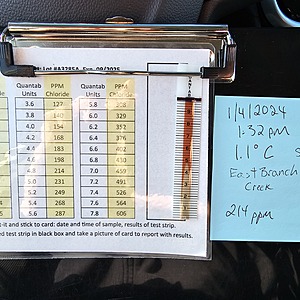 Lot #A3285A Exp. 09/2025
Quantab Units PPM Chloride Quantab Units PPM Chloride
3.6 127 5.8 308
3.8 140 6.0 329
4.0 154 6.2 352
4.2 168 6.4 376
4.4 183 6.6 402
4.6 198 6.8 430
4.8 214 7.0 459
5.0 231 7.2 491
5.2 249 7.4 526
5.4 268 7.6 564
5.6 287 7.8 606
t-it and stick to card: date and time of sample, results of test strip.
ed test strip in black box and take a picture of card to report with results.
1/4/2024
1:32 pm
1.1°C
East Branch
Creek
214 ppm